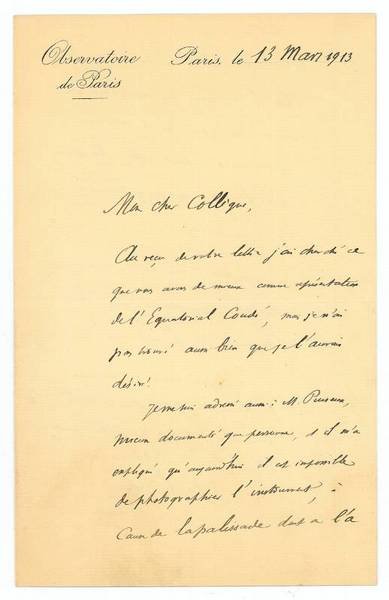 Observatoire
de Paris
Paris, le 13 Mars 1913
Mon cher Collègue,
Au reçu de votre lettre j'ai cherché ce
que nous avons de mieux comme représentation
de l'Equatorial Coudé, mais je n'ai
pas trouvé aussi bien que je l'aurais
désiré.
Je me suis adressé aussi à M. Puiseux,
mieux documenté que personne, et il m'a
expliqué qu'aujourd'hui il est impossible
de photographier l'instrument, à
cause de la palissade dont on l'a